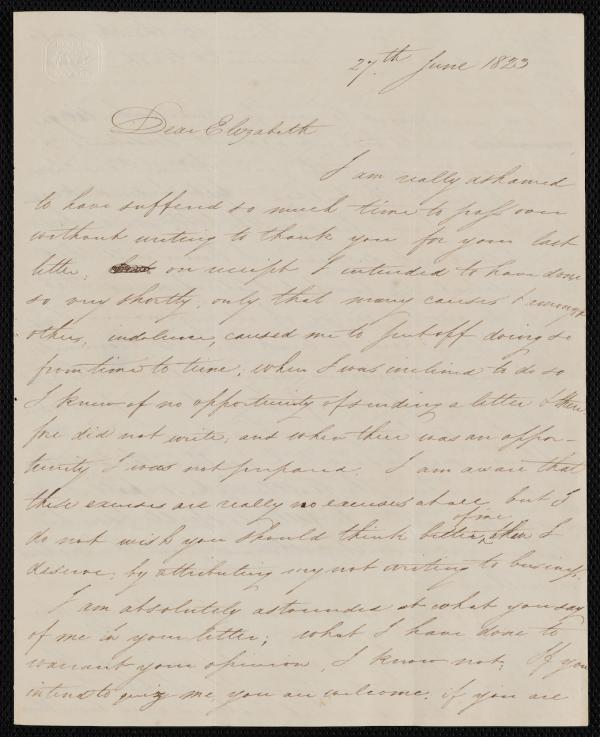 27th June 1823
Dear Elizabeth
I am really ashamed
to have suffered so much time to pass over
without writing to thank you for your last
letter, on receipt I intended to have done
so very shortly, only that many causes & amongst
others, indolence, caused me to put off doing so
from time to time, when I was inclined to do so
I knew of no opportunity of sending a letter & there
fore did not write, and when there was an oppor-
tunity I was not prepared. I am aware that
these excuses are really no excuses at all, but I
do not wish you should think better of me than I
deserve, by attributing my not writing to business.
I am absolutely astounded at what you say
of me in your letter; what I have done to
warrant your opinion, I know not. If you
intend to quiz me, you are welcome, if you are